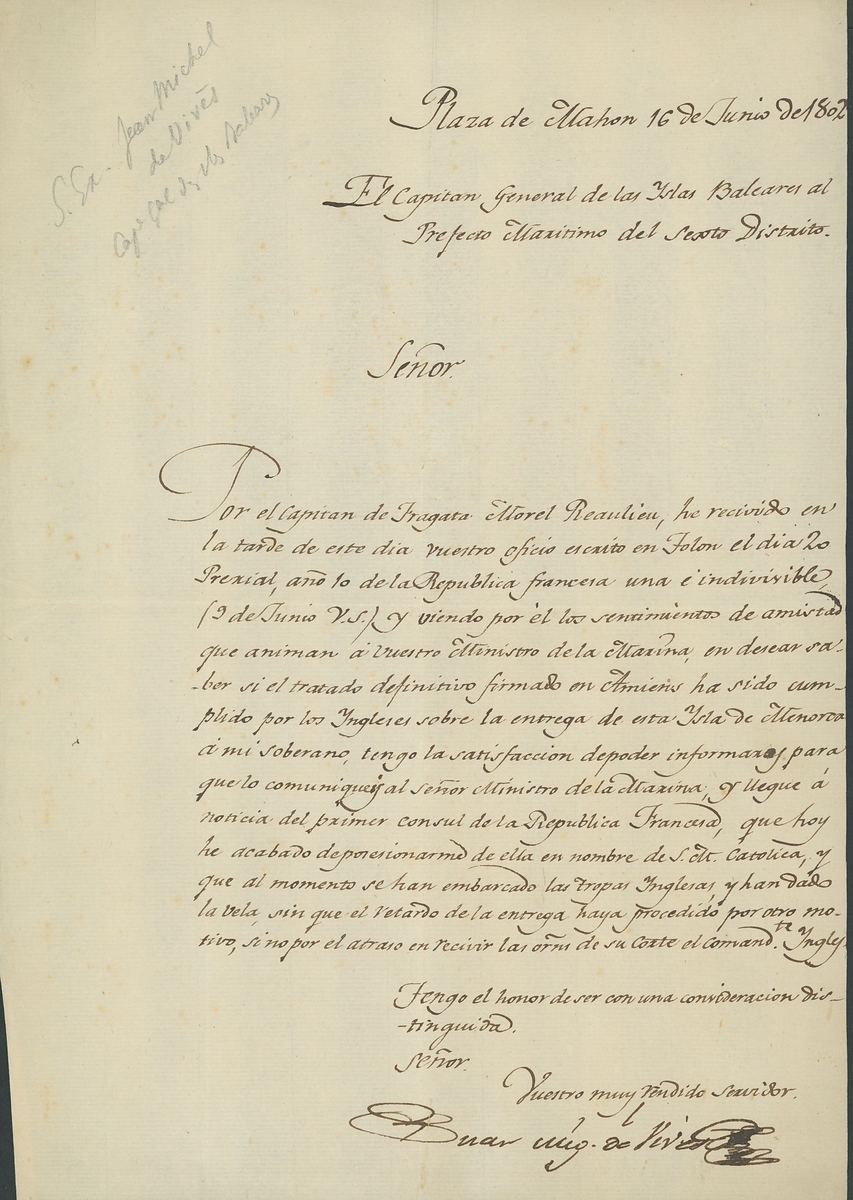 S. Ex. Jean Michel
de Vivés
Cap. Gal des Iles Baleares
Plaza de Mahon 16 de Junio de 1802
El Capitan General de las Yslas Baleares al
Prefecto Maritimo del Sexto Distrito.
Señor.
Por el Capitan de Fragata Morel Beaulieu, he recivido en
la tarde de este dia vuestro oficio escrito en Tolon el dia 20
Prexial, año 10 de la Republica francesa una é indivisible,
(9 de Junio V.S.) y viendo por él los sentimientos de amistad
que animan á vuestro Ministro de la Marina, en desear sa-
-ber si el tratado definitivo firmado en Amiens ha sido cum-
plido por los Yngleses sobre la entrega de esta Ysla de Menorca
á mi soberano, tengo la satisfaccion de poder informaros para
que lo comuniqueis al señor Ministro de la Marina, y llegue á
noticia del primer consul de la Republica Francesa, que hoy
he acabado de posesionarme de ella en nombre de S. M. Catolica, y
que al momento se han embarcado las tropas Ynglesas, y han dado
la vela, sin que el retardo de la entrega haya procedido por otro mo-
tivo, sino por el atraso en recivir las orns de su Corte el Comand.te Yngles.
Tengo el honor de ser con una consideracion dis-
-tinguida.
Señor.
Vuestro muy rendido servidor.
Juan Mig. de Vives